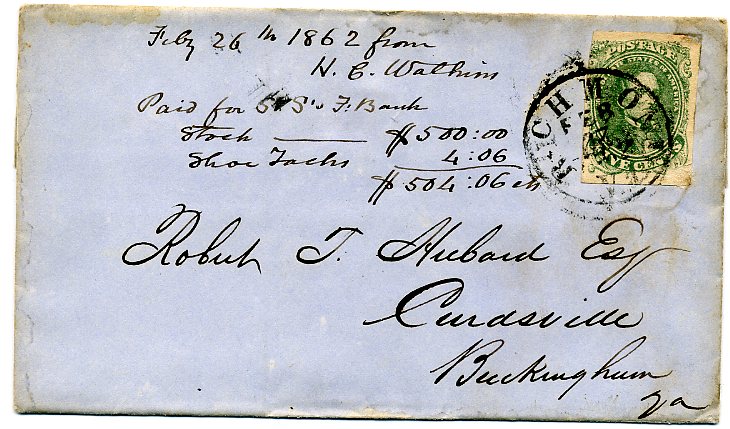 Feby 26th 1862 from
H. C. Watkins
Paid for S. F. Bank
Stock $500:00
Shoe Tacks 4:06
$504:06 cts
POSTAGE
RICHMOND
FEB
FIVE CENTS
Robert T. Hubard Esq
Curdsville
Buckingham
Va